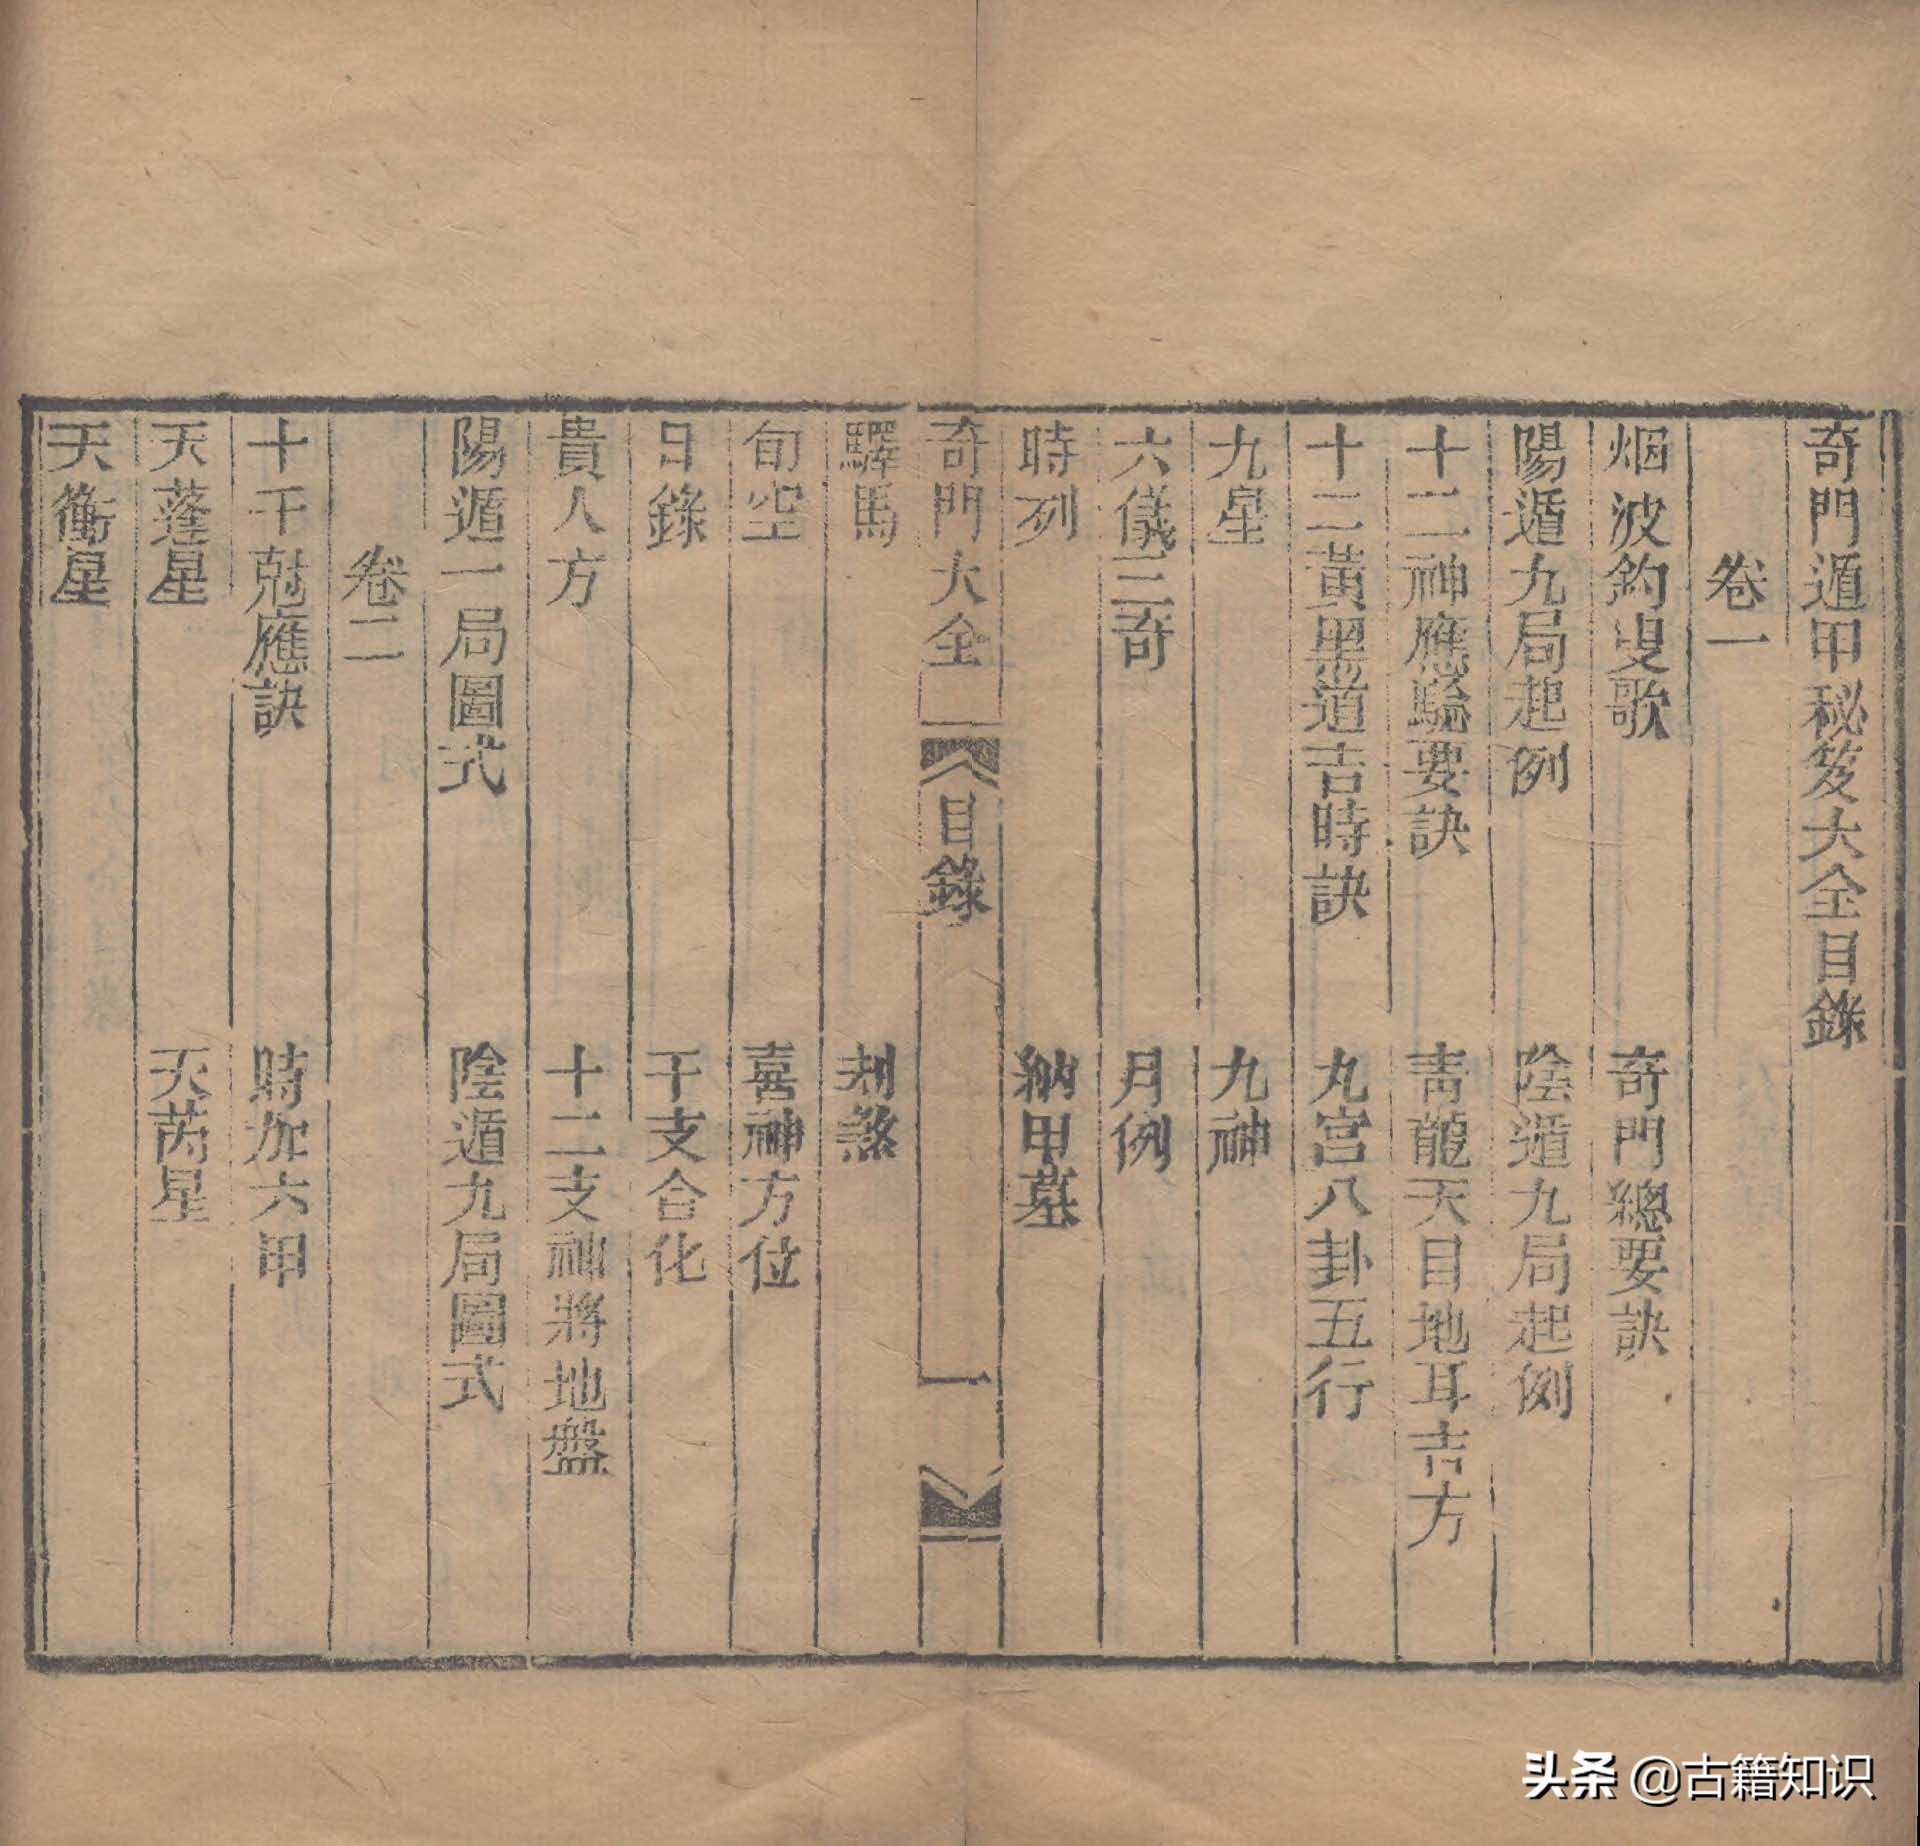 奇門遁甲秘笈大全目錄
卷一
烟波釣叟歌　奇門總要訣
陽遁九局起例　陰遁九局起例
十二神應驗要訣　青龍天目地耳吉方
十二黃黑道吉時訣　九宮八卦五行
九星　九神
六儀三奇　月例
時列　納甲墓
奇門大全　目錄　一
驛馬　刦煞
旬空　喜神方位
日錄　干支合化
貴人方　十二支神將地盤
陽遁一局圖式　陰遁九局圖式
卷二
十干尅應訣　時加六甲
天蓬星　天芮星
天衝星
头条 @古籍知识